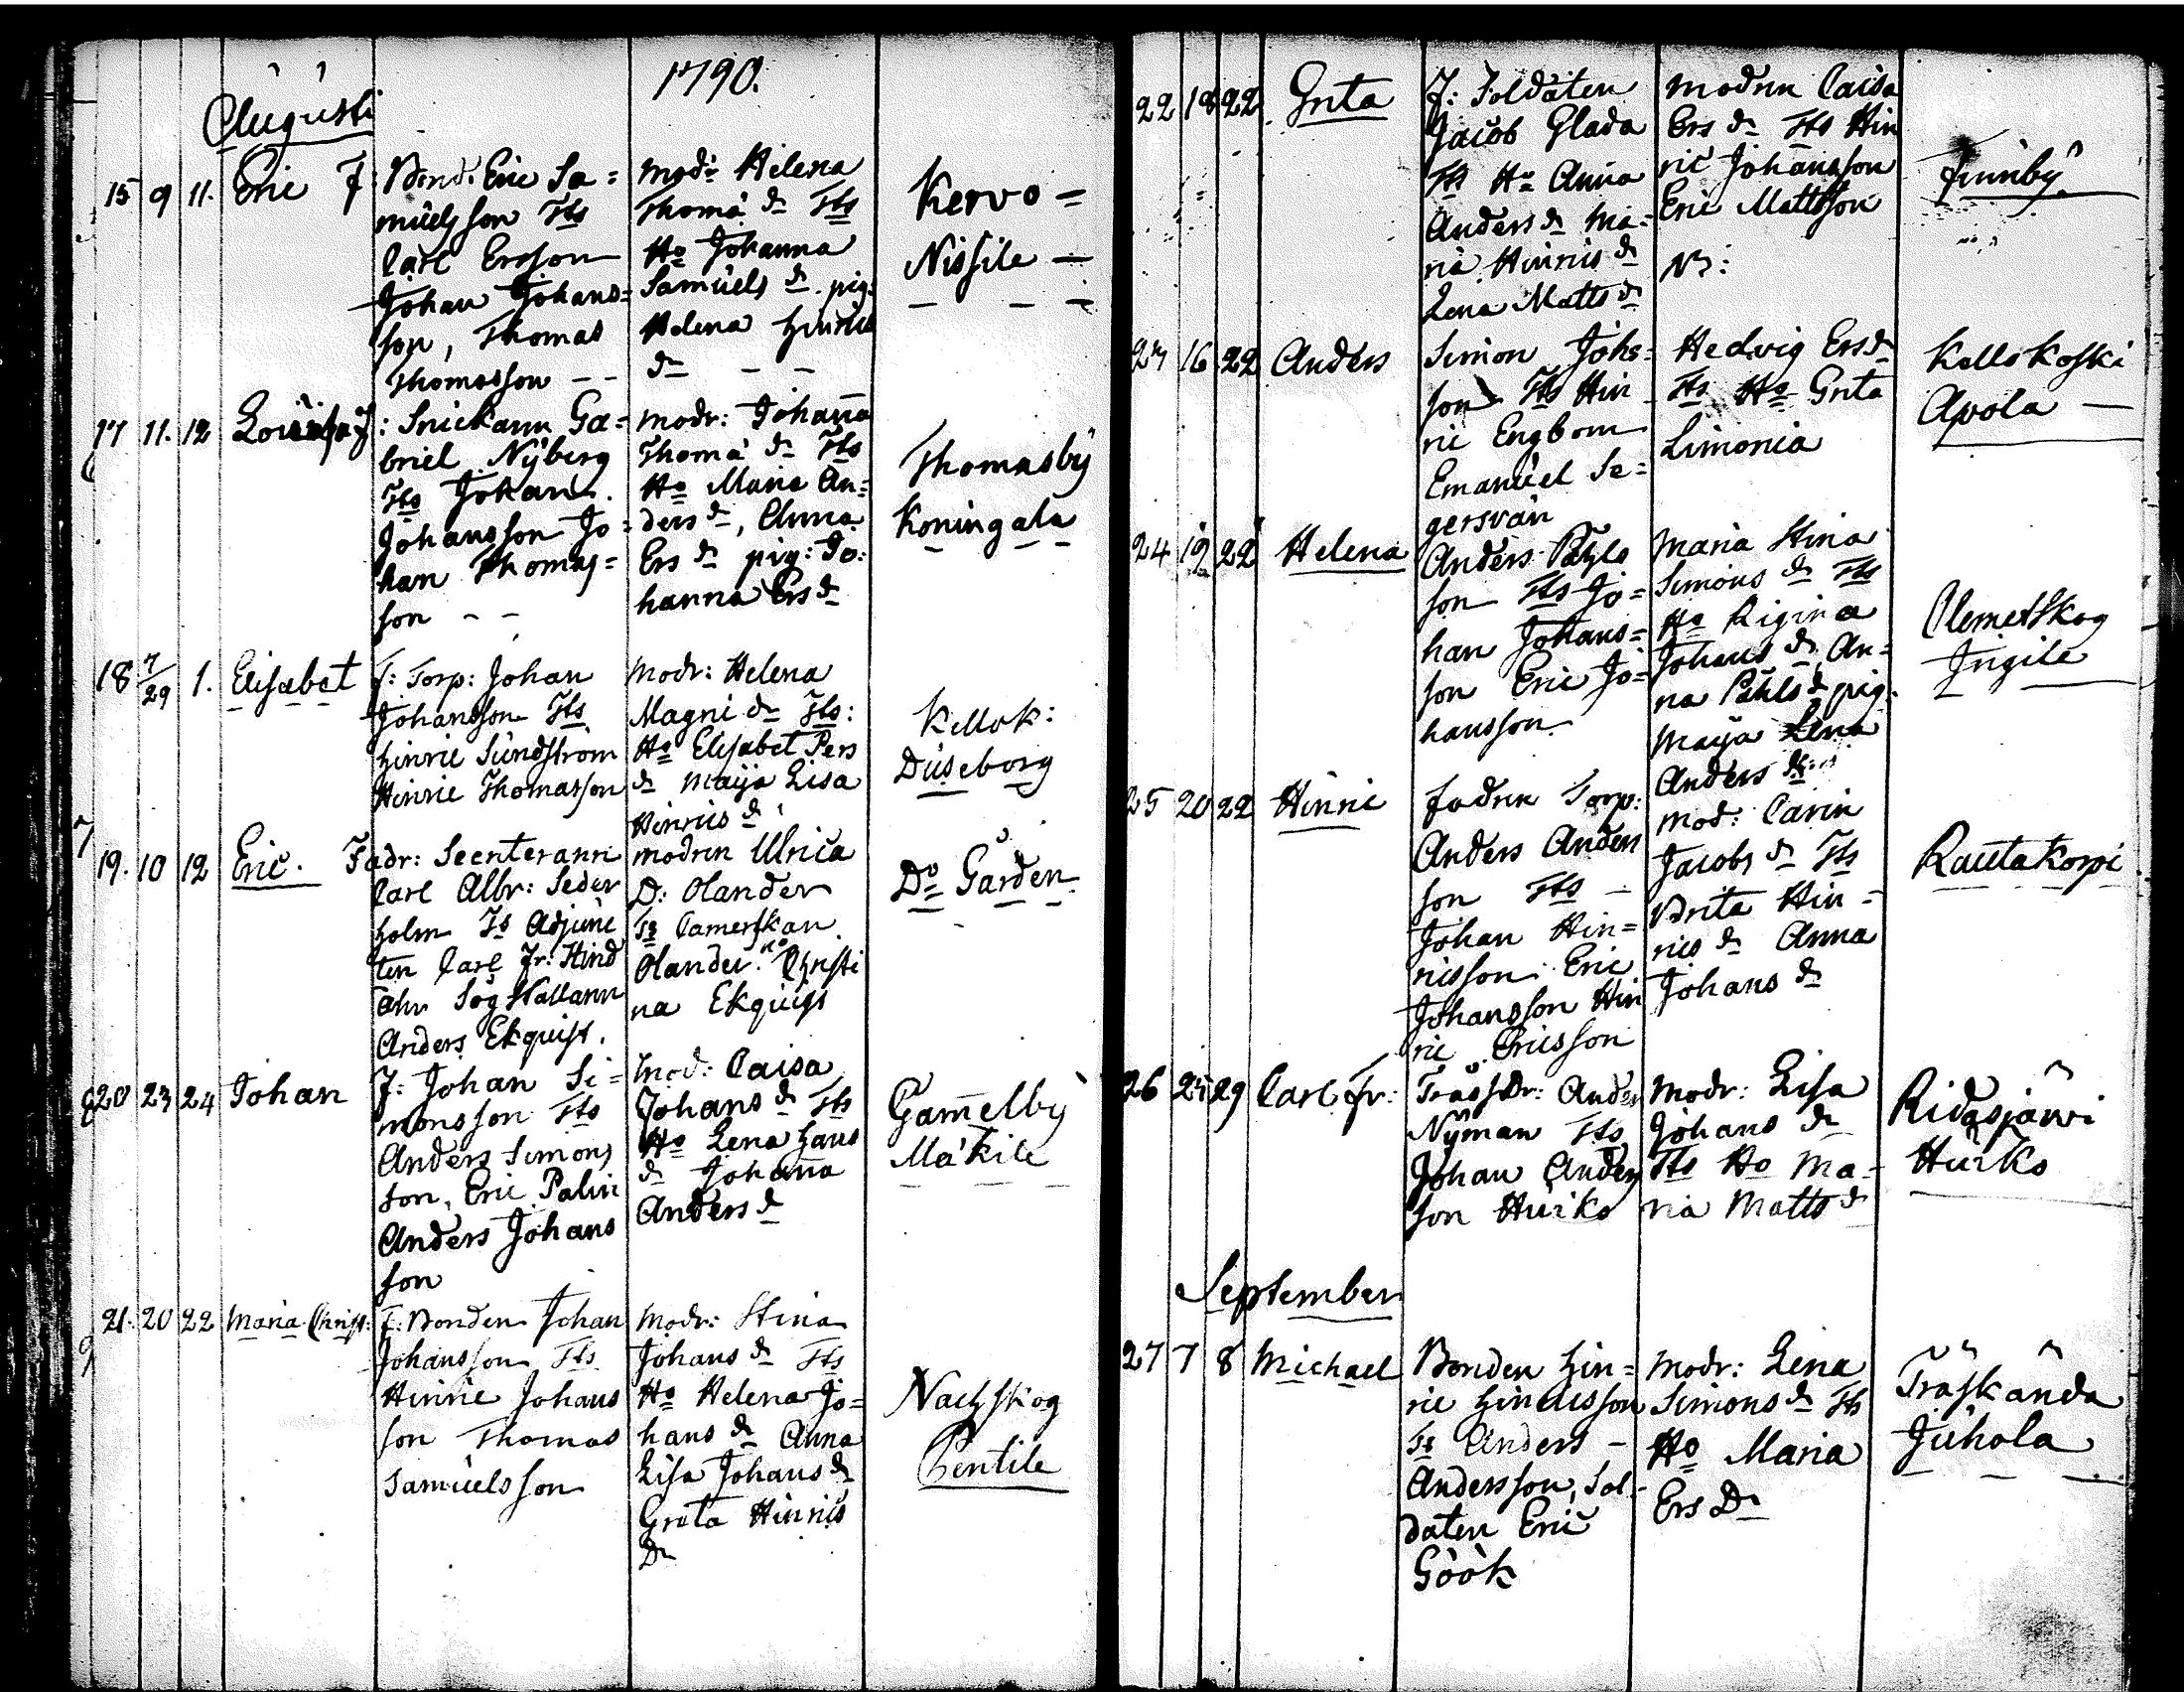 1790.
Augusti
15 9 11. Eric F: Bond. Eric Sa=
muelsson Tts
Carl Ersson
Johan Johans=
son, Thomas
Thomasson - -
modr: Helena
Thomæ dr Tts
Ho Johanna
Samuels dr pig:
Helena Hinrics
dr - -
Kervo =
Nissile —
17 11. 12 Lovisa F: Snickarn Ga=
briel Nyberg
Tts Johan
Johansson Jo=
han Thomas=
son - -
modr: Johanna
Thomæ dr Tts
Ho Maria An=
ders dr, Anna
Ers dr pig: Jo:
hanna Ers dr
Thomasby
Koningala
18 7/29 1. Elisabet F: Torp: Johan
Johansson Tts
Hinric Sundström
Hinric Thomasson
modr: Helena
Magni dr Tts:
Ho Elisabet Pers
dr Maija Lisa
Hinrics dr
Kellok:
Duseborg
19. 10 12 Eric. Fadr:
Carl Albr: Seder
holm Ts Adjunc
ten Carl Fr:
Anders Ekquist.
modren Ulrica
D: Olander
Olander
Christi
na Ekquist
Do Gården
20 23 24 Johan F: Johan Si=
monsson Tts
Anders Simons
son, Eric Palin
Anders Johans
son
mod: Caisa
Johans dr Tts
Ho Lena Hans
dr Johanna
Anders dr
Gammelby
Mäkile
21. 20 22 Maria Christ: F: Bonden Johan
Johansson Tts
Hinric Johans
son Thomas
Samuelsson
modr: Stina
Johans dr Tts
Ho Helena Jo=
hans dr Anna
Lisa Johans dr
Greta Hinrics
Dr
Nackskog
Pentile
22 18 22 Greta F: Soldaten
Jacob Glada
Tts Ho Anna
Anders dr Ma=
ria Hinrics dr
Lena Matts dr
modren Caisa
Ers dr Tts Hin
ric Johansson
Eric Mattsson
23 16 22 Anders Simon Johs=
son Tts Hin
ric Engbom
Emanuel Se=
gersvan
Hedvig Ers dr
Tts Ho Greta
Limonia
Kellokoski
Avola —
24 19 22 Helena Anders Påhls
son Tts Jo=
han Johans=
son Eric Jo=
hansson
Maria Stina
Simons dr Tts
Ho Rigina
Johans dr, An=
na Påhls dr pig.
Maija Lena
Anders dr
Clemetskog
Ingile
25 20 22 Hinric fadren Torp:
Anders Anders
son Tts —
Johan Hin=
ricsson Eric
Johansson Hin
ric Ericsson
mod: Carin
Jacobs dr Tts
Brita Hin=
rics dr Anna
Johans dr
Rautakorpi
26 25 29 Carl Fr: Anders
Nyman Tts
Johan Anders
son Huiko
modr: Lisa
Johans dr
Tts Ho Ma=
ria Matts dr
Ridasjärvi
Huiko
September
27 7 8 Michael Bonden Hin=
ric Hinricsson
Ts Anders —
Andersson, Sol=
daten Eric
Göök
modr: Lena
Simons dr Tts
Ho Maria
Ers Dr
Träskända
Juhola